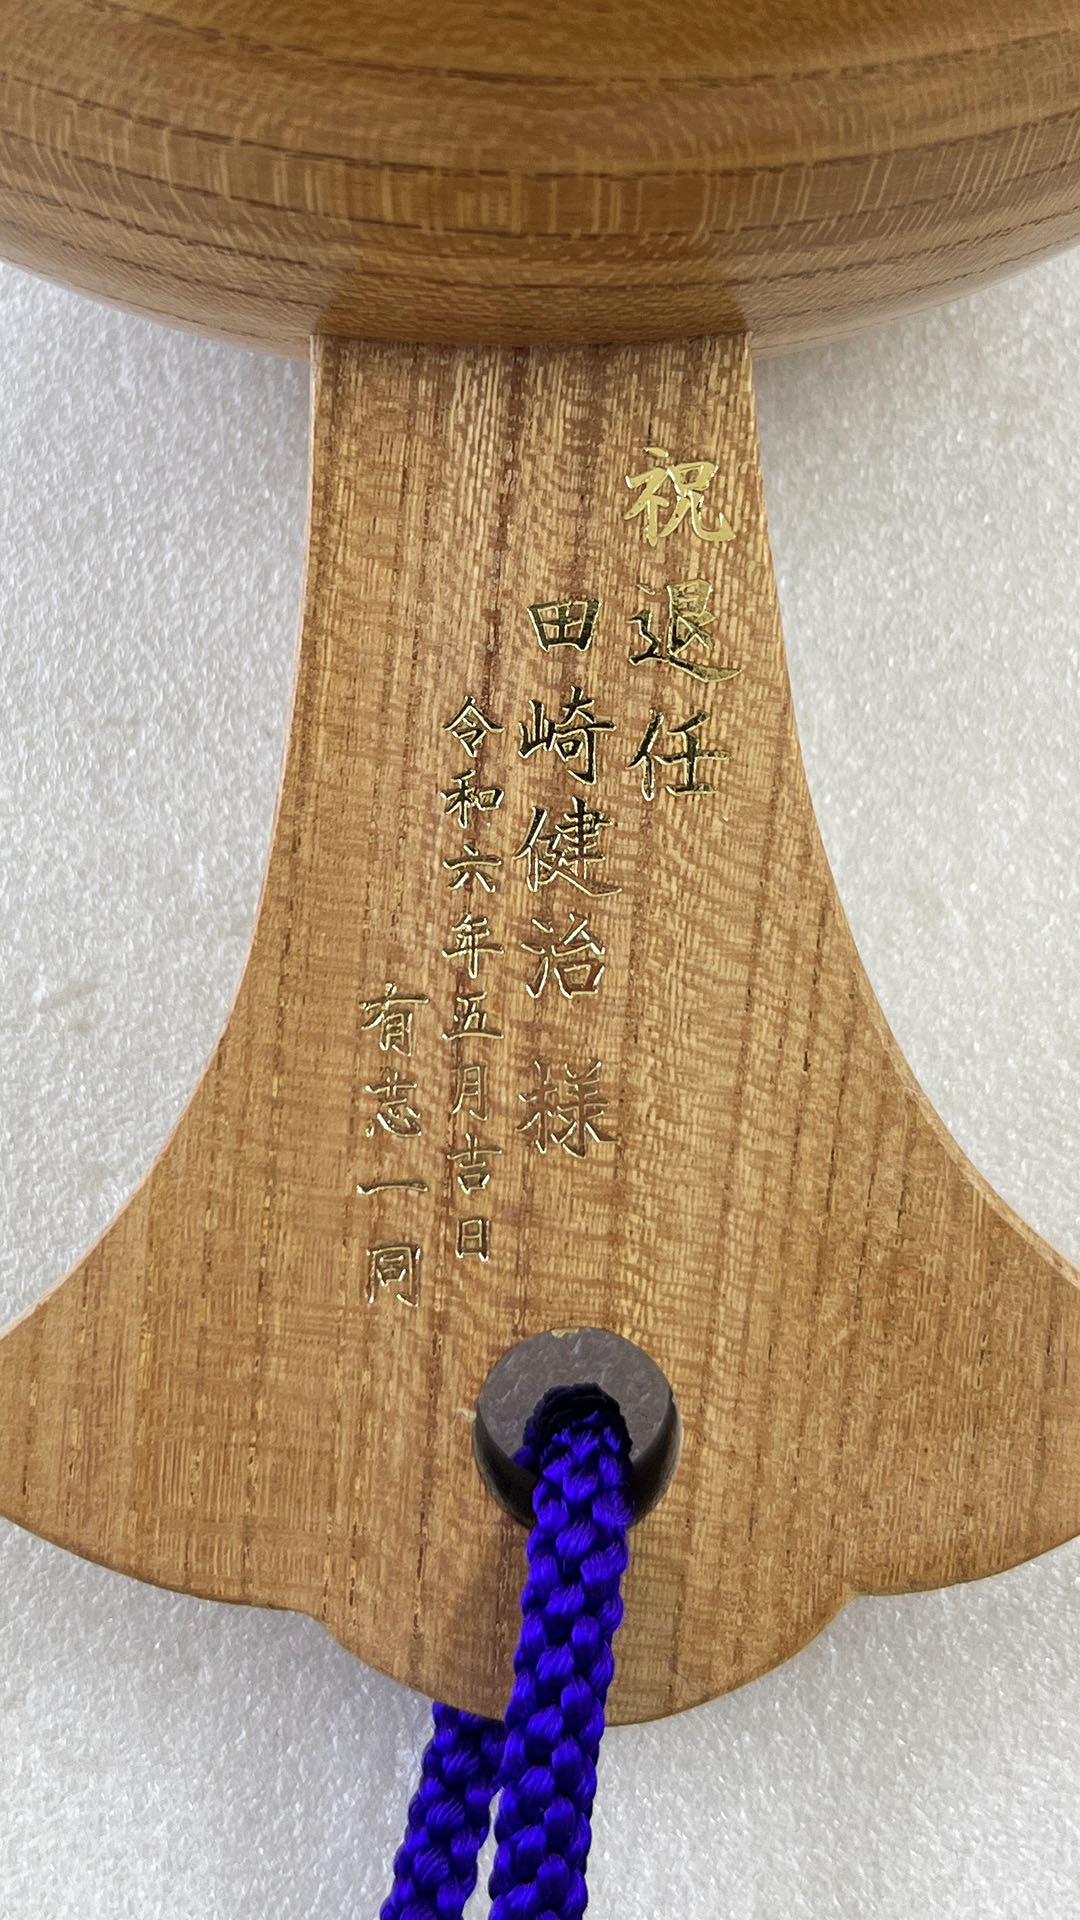 祝退任
田崎健治 様
令和六年五月吉日
有志一同